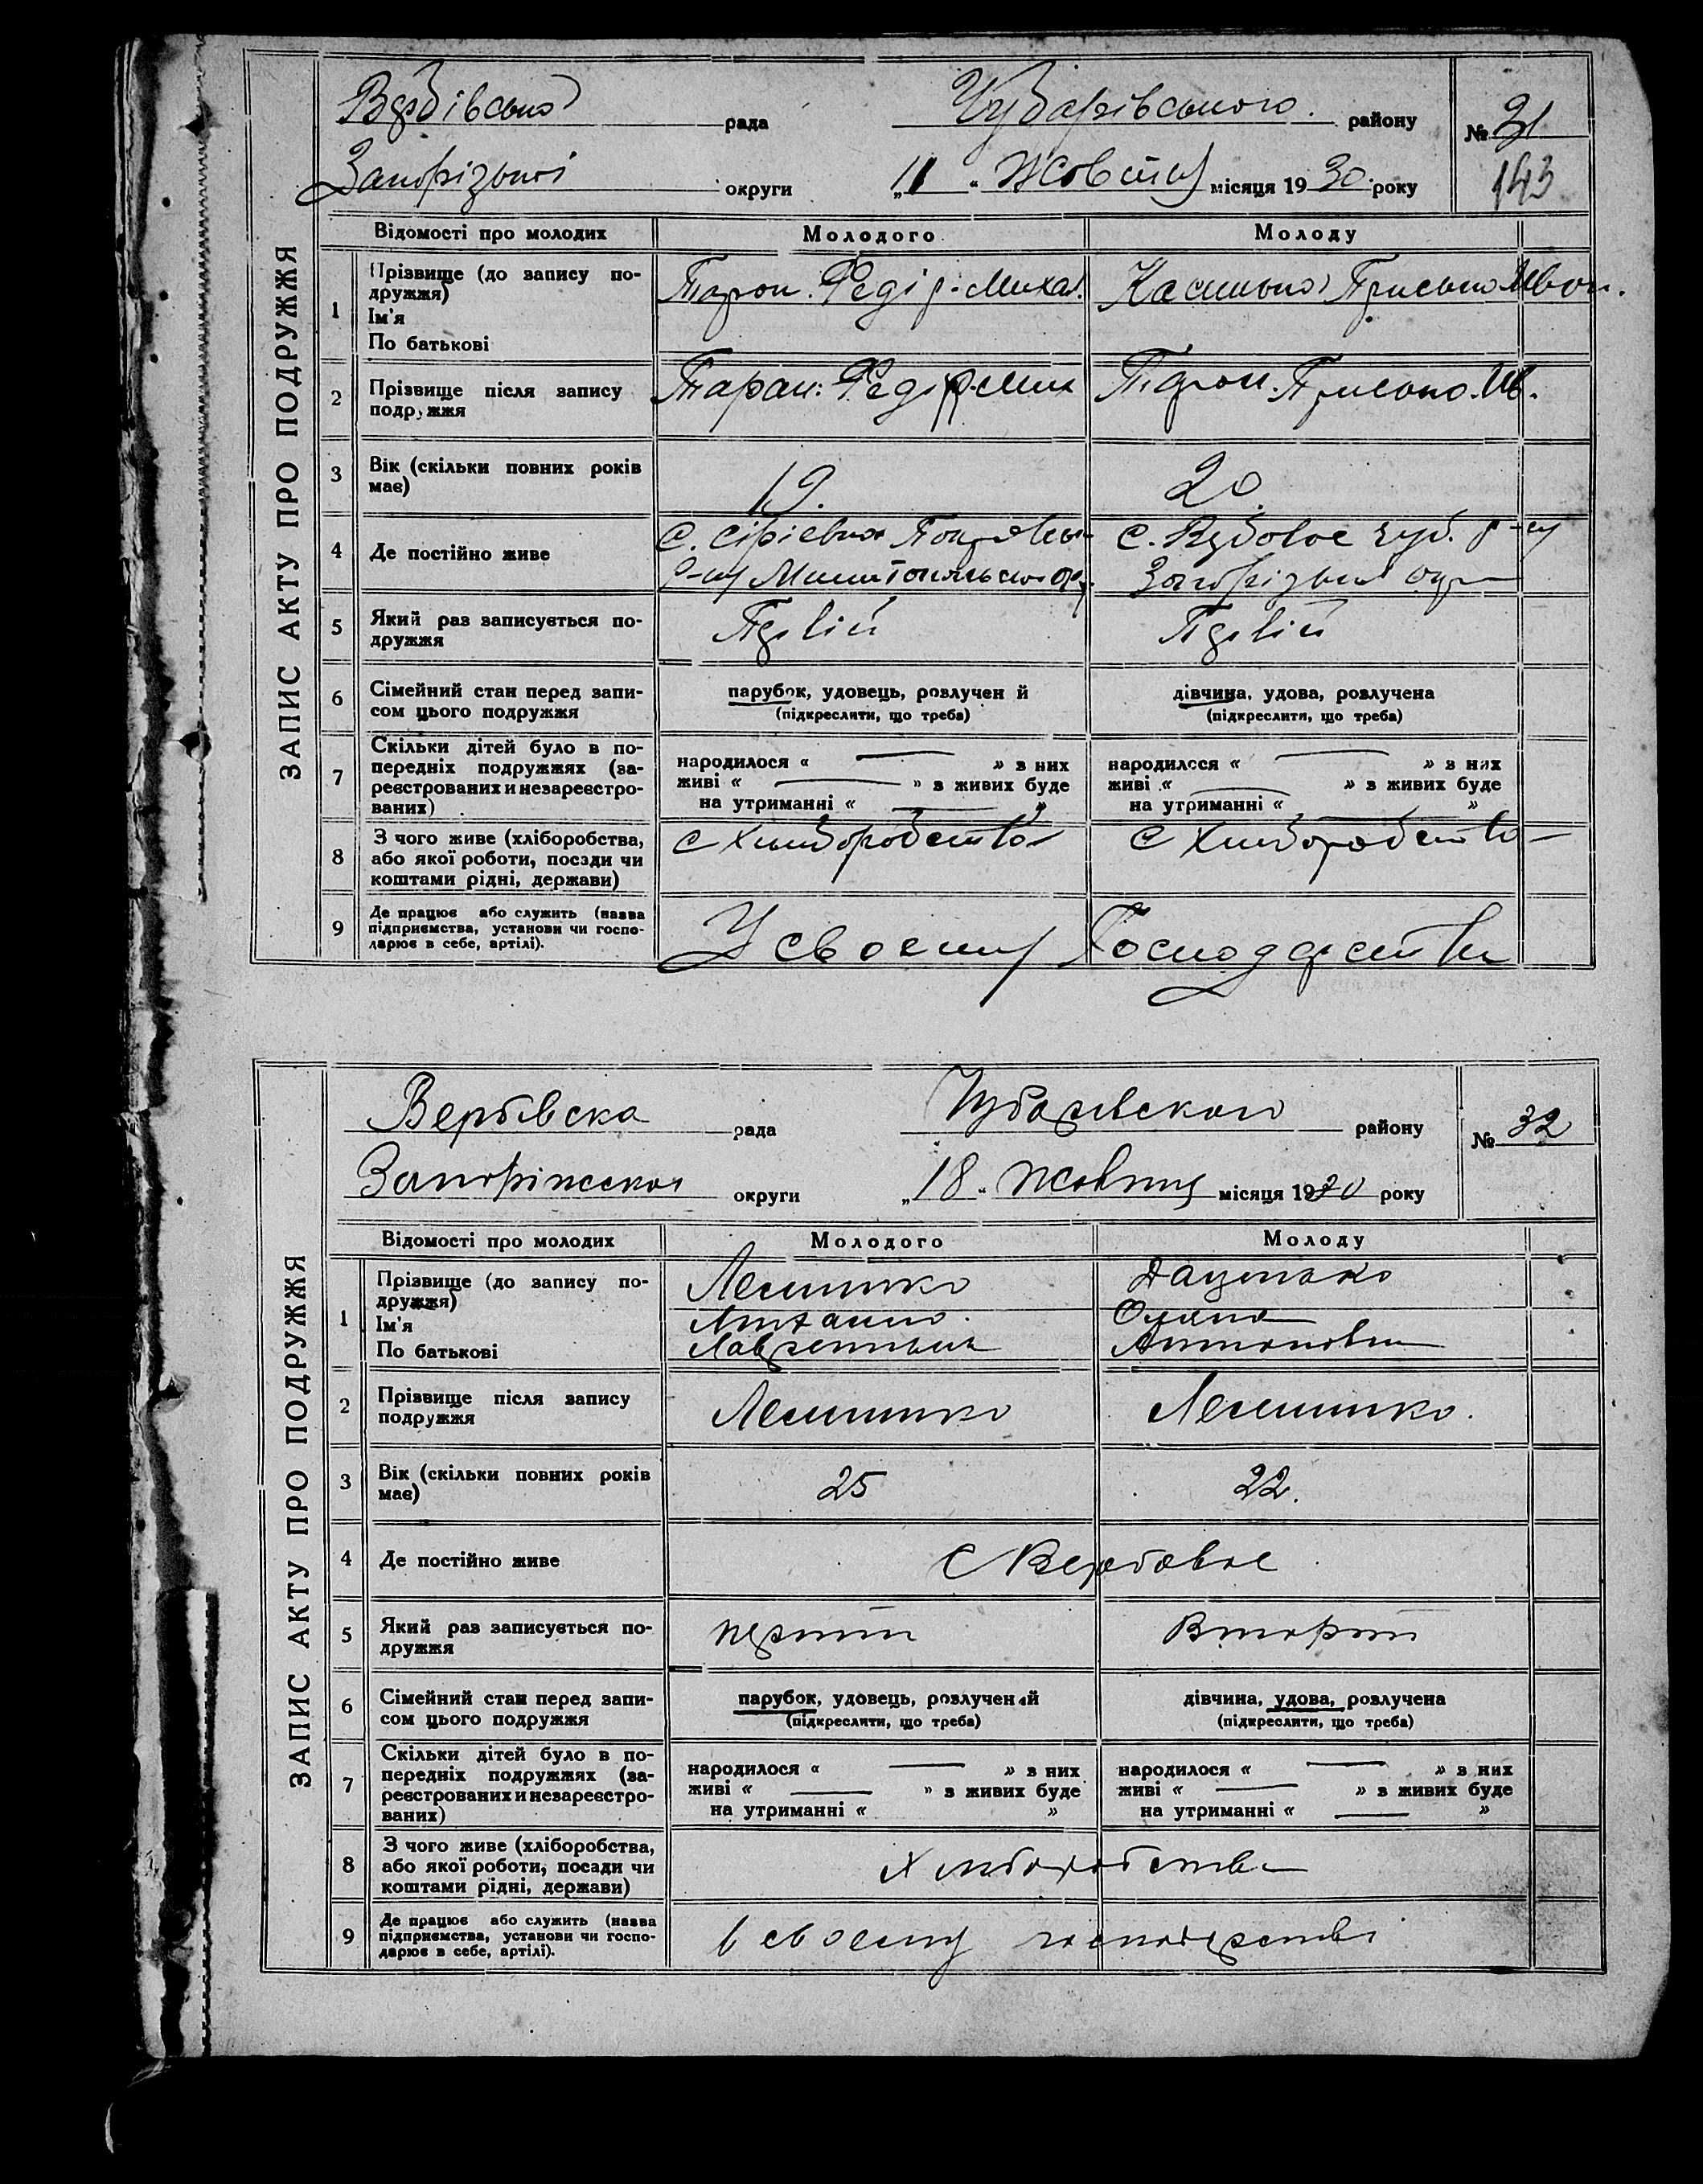 ЗАПИС АКТУ ПРО ПОДРУЖЖЯ
Вербівська рада Чубарівського району № 31
Запорізької округи „11“ Жовтня місяця 1930 року 143
Відомості про молодих Молодого Молоду
1 Прізвище (до запису по-
дружжя)
Ім'я
По батькові
Таран. Федір. Миха. Приська Иван.
2 Прізвище після запису
подружжя
Таран. Федір. Мих Таран. Приська. Ив.
3 Вік (скільки повних років
має)
19. 20.
4 Де постійно живе
с. с. Вербовое Чуб. р-ну
р-ну Запорізької окр
5 Який раз записується по-
дружжя
Первій Первій
6 Сімейний стан перед запи-
сом цього подружжя
парубок, удовець, розлучен й дівчина, удова, розлучена
(підкреслити, що треба) (підкреслити, що треба)
7 Скільки дітей було в по-
передніх подружжях (за-
реєстрованих и незареєстро-
ваних)
народилося « — » з них народилося « — » з них
живі « — » з живих буде живі « — » з живих буде
на утриманні « — » на утриманні « — »
8 З чого живе (хліборобства,
або якої роботи, посади чи
коштами рідні, держави)
с Хліборобства с Хліборобства
9 Де працює або служить (назва
підприємства, установи чи госпо-
дарює в себе, артілі).
У своєму Господарстви
ЗАПИС АКТУ ПРО ПОДРУЖЖЯ
Вербівска рада Чубарівского району № 32
Запоріжская округи „18“ Жовтня місяця 1930 року
Відомості про молодих Молодого Молоду
1 Прізвище (до запису по-
дружжя)
Ім'я
По батькові
Даценко
Антоновна
2 Прізвище після запису
подружжя
3 Вік (скільки повних років
має)
25 22.
4 Де постійно живе
С Вербовое
5 Який раз записується по-
дружжя
перший Вторий
6 Сімейний стан перед запи-
сом цього подружжя
парубок, удовець, розлучений дівчина, удова, розлучена
(підкреслити, що треба) (підкреслити, що треба)
7 Скільки дітей було в по-
передніх подружжях (за-
реєстрованих и незареєстро-
ваних)
народилося « — » з них народилося « — » з них
живі « — » з живих буде живі « — » з живих буде
на утриманні « » на утриманні « — »
8 З чого живе (хліборобства,
або якої роботи, посади чи
коштами рідні, держави)
Хліборобства
9 Де працює або служить (назва
підприємства, установи чи госпо-
дарює в себе, артілі).
в своєму господарстві